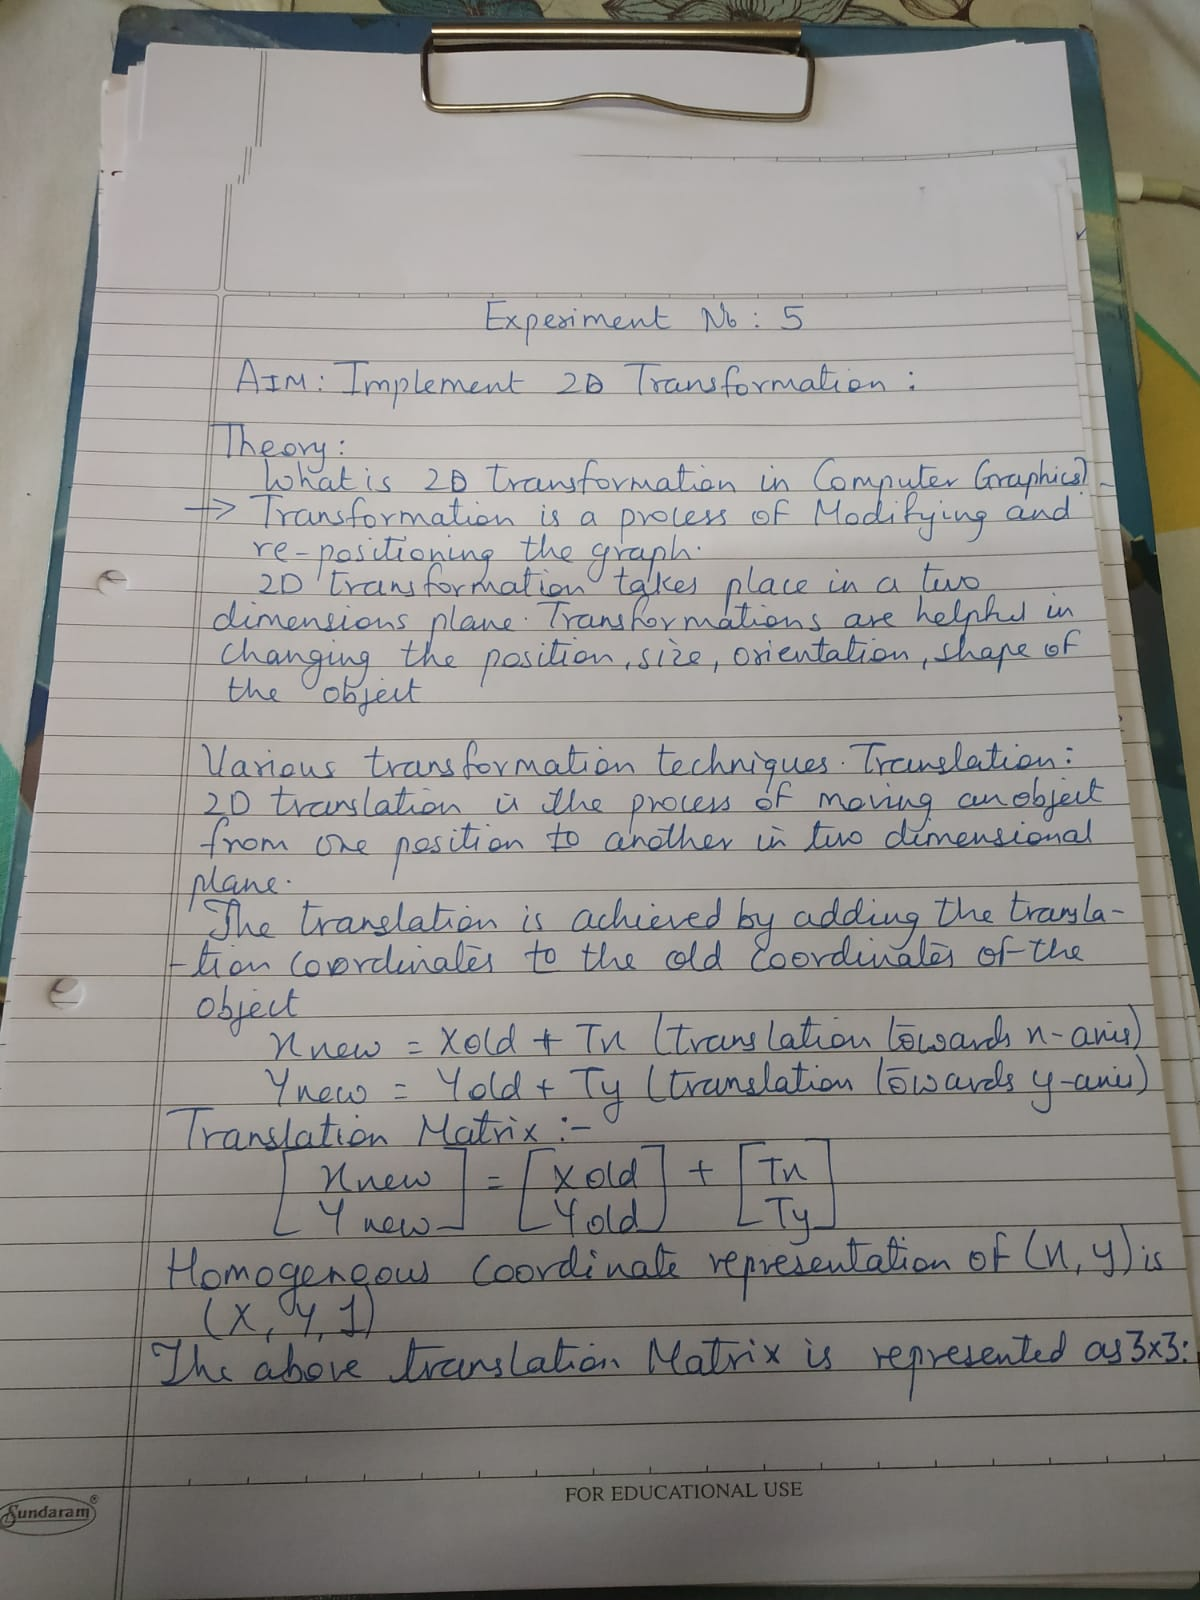 Experiment No : 5
AIM : Implement 2D Transformation :
Theory :
What is 2D transformation in Computer Graphics?
→ Transformation is a process of Modifying and
re-positioning the graph.
2D transformation takes place in a two
dimensions plane. Transformations are helpful in
changing the position, size, orientation, shape of
the object
Various transformation techniques. Translation :
2D translation is the process of moving an object
from one position to another in two dimensional
plane.
The translation is achieved by adding the transla-
-tion coordinates to the old coordinates of the
object
xnew = Xold + Tx (translation towards x-axis)
Ynew = Yold + Ty (translation towards y-axis)
Translation Matrix :-
[ xnew ] = [ Xold ] + [ Tx ]
[ Ynew ] [ Yold ] [ Ty ]
Homogeneous coordinate representation of (x, y) is
(X, Y, 1)
The above translation Matrix is represented as 3x3:
FOR EDUCATIONAL USE
Sundaram®